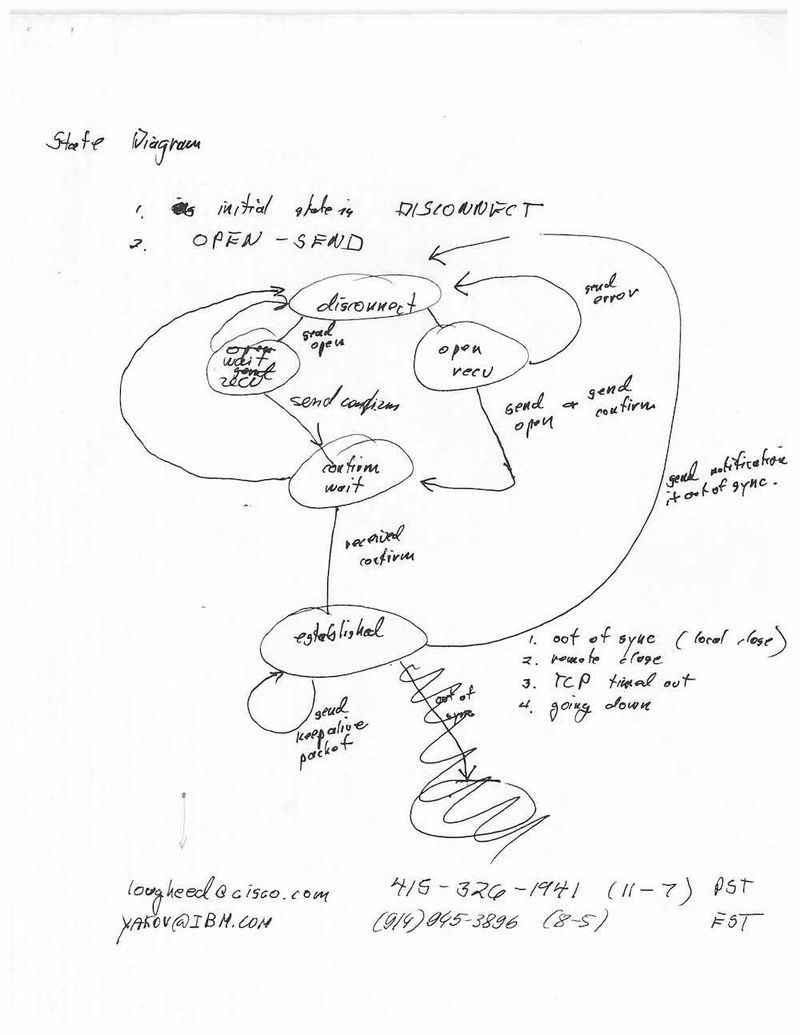 State Diagram
1. initial state is DISCONNECT
2. OPEN - SEND
disconnect
send
error
send
open
open
wait
send
recv
open
recv
send confirm
send or send
open confirm
confirm
wait
send notification
if out of sync.
received
confirm
established
1. out of sync (local close)
2. remote close
3. TCP timed out
4. going down
out of
sync
send
keepalive
packet
lougheed@cisco.com 415-326-1941 (11-7) PST
YAKOV@IBM.COM (914) 945-3896 (8-5) EST